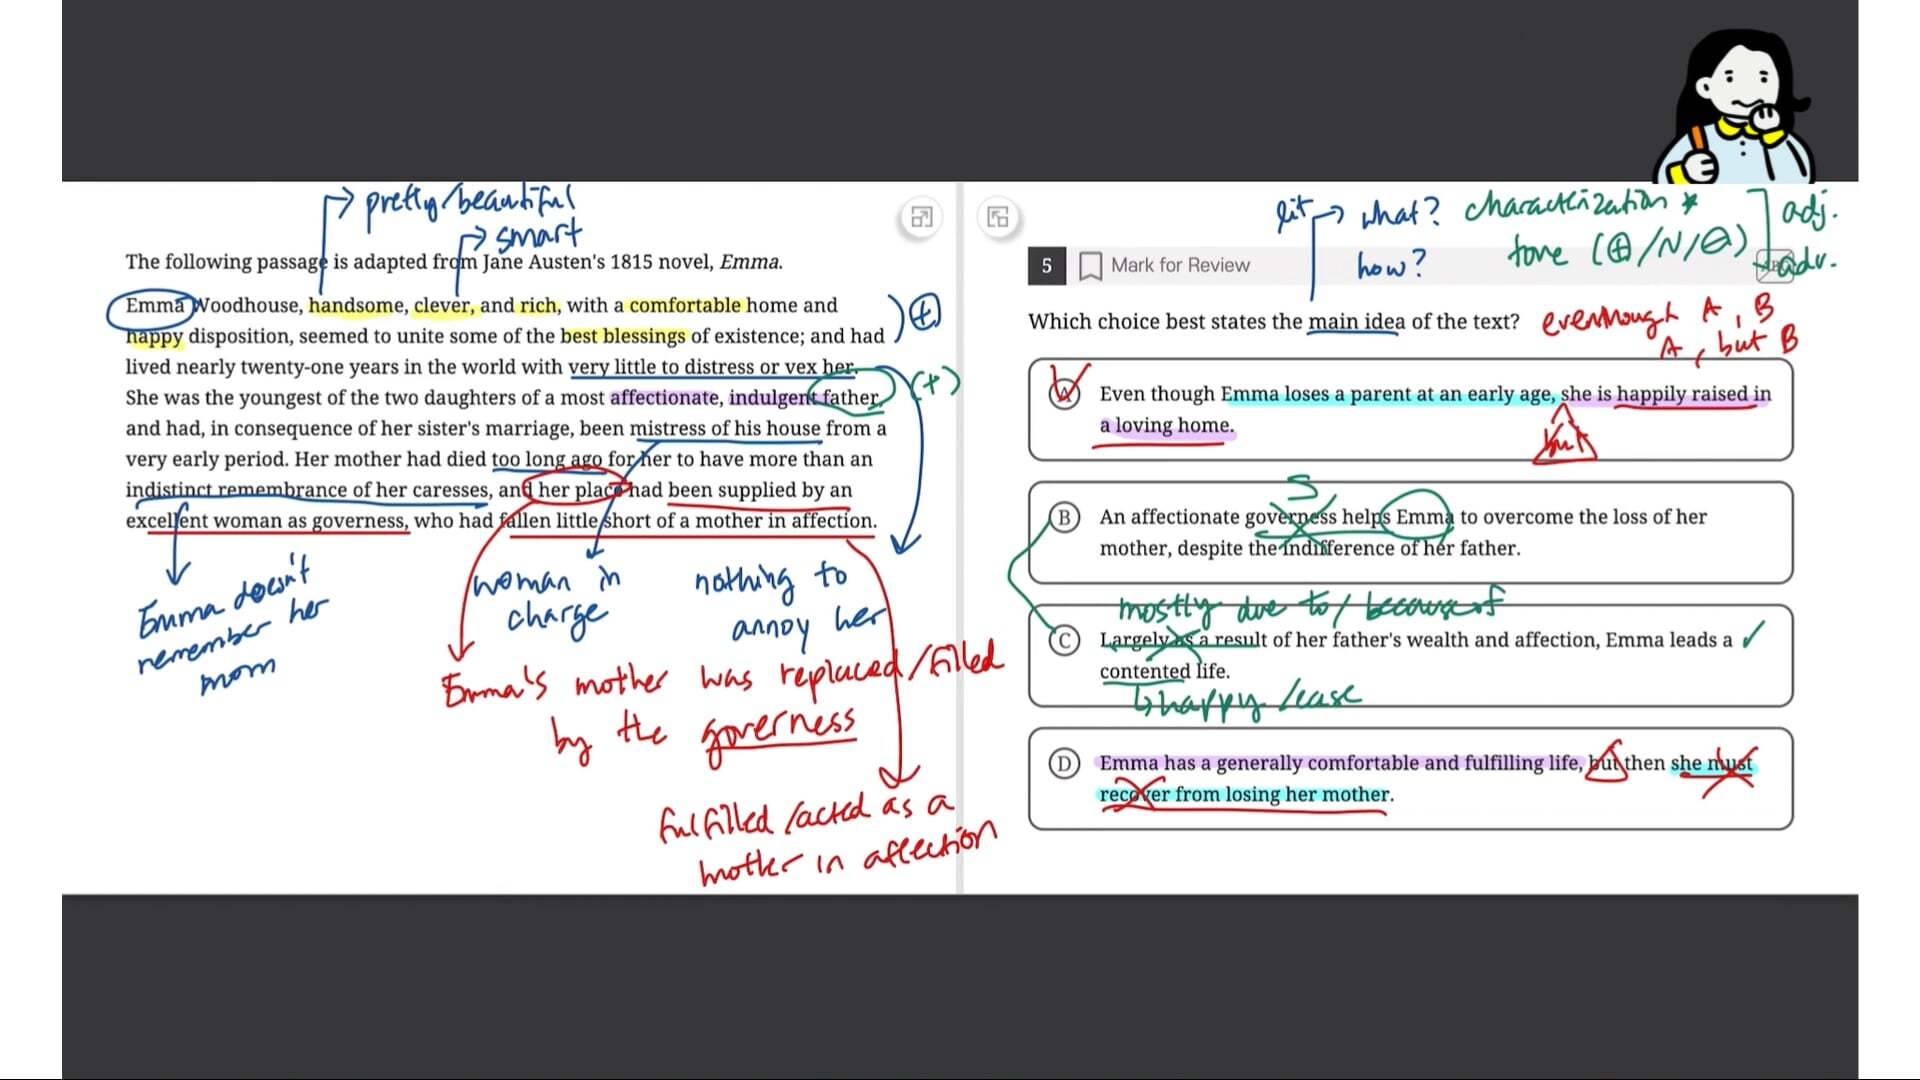 pretty/beautiful
smart
The following passage is adapted from Jane Austen's 1815 novel, Emma.
Emma Woodhouse, handsome, clever, and rich, with a comfortable home and
happy disposition, seemed to unite some of the best blessings of existence; and had
lived nearly twenty-one years in the world with very little to distress or vex her.
She was the youngest of the two daughters of a most affectionate, indulgent father,
and had, in consequence of her sister's marriage, been mistress of his house from a
very early period. Her mother had died too long ago for her to have more than an
indistinct remembrance of her caresses, and her place had been supplied by an
excellent woman as governess, who had fallen little short of a mother in affection.
(+)
Emma doesn't
remember her
mom
woman in
charge
nothing to
annoy her
Emma's mother was replaced/filled
by the governess
fulfilled/acted as a
mother in affection
lit what? characterization
how? tone (+/N/-)
adj.
adv.
5 Mark for Review
Which choice best states the main idea of the text?
eventhough A, B
A, but B
A Even though Emma loses a parent at an early age, she is happily raised in
a loving home.
but
S
B An affectionate governess helps Emma to overcome the loss of her
mother, despite the indifference of her father.
mostly due to/because of
C Largely as a result of her father's wealth and affection, Emma leads a
contented life.
happy/ease
D Emma has a generally comfortable and fulfilling life, but then she must
recover from losing her mother.